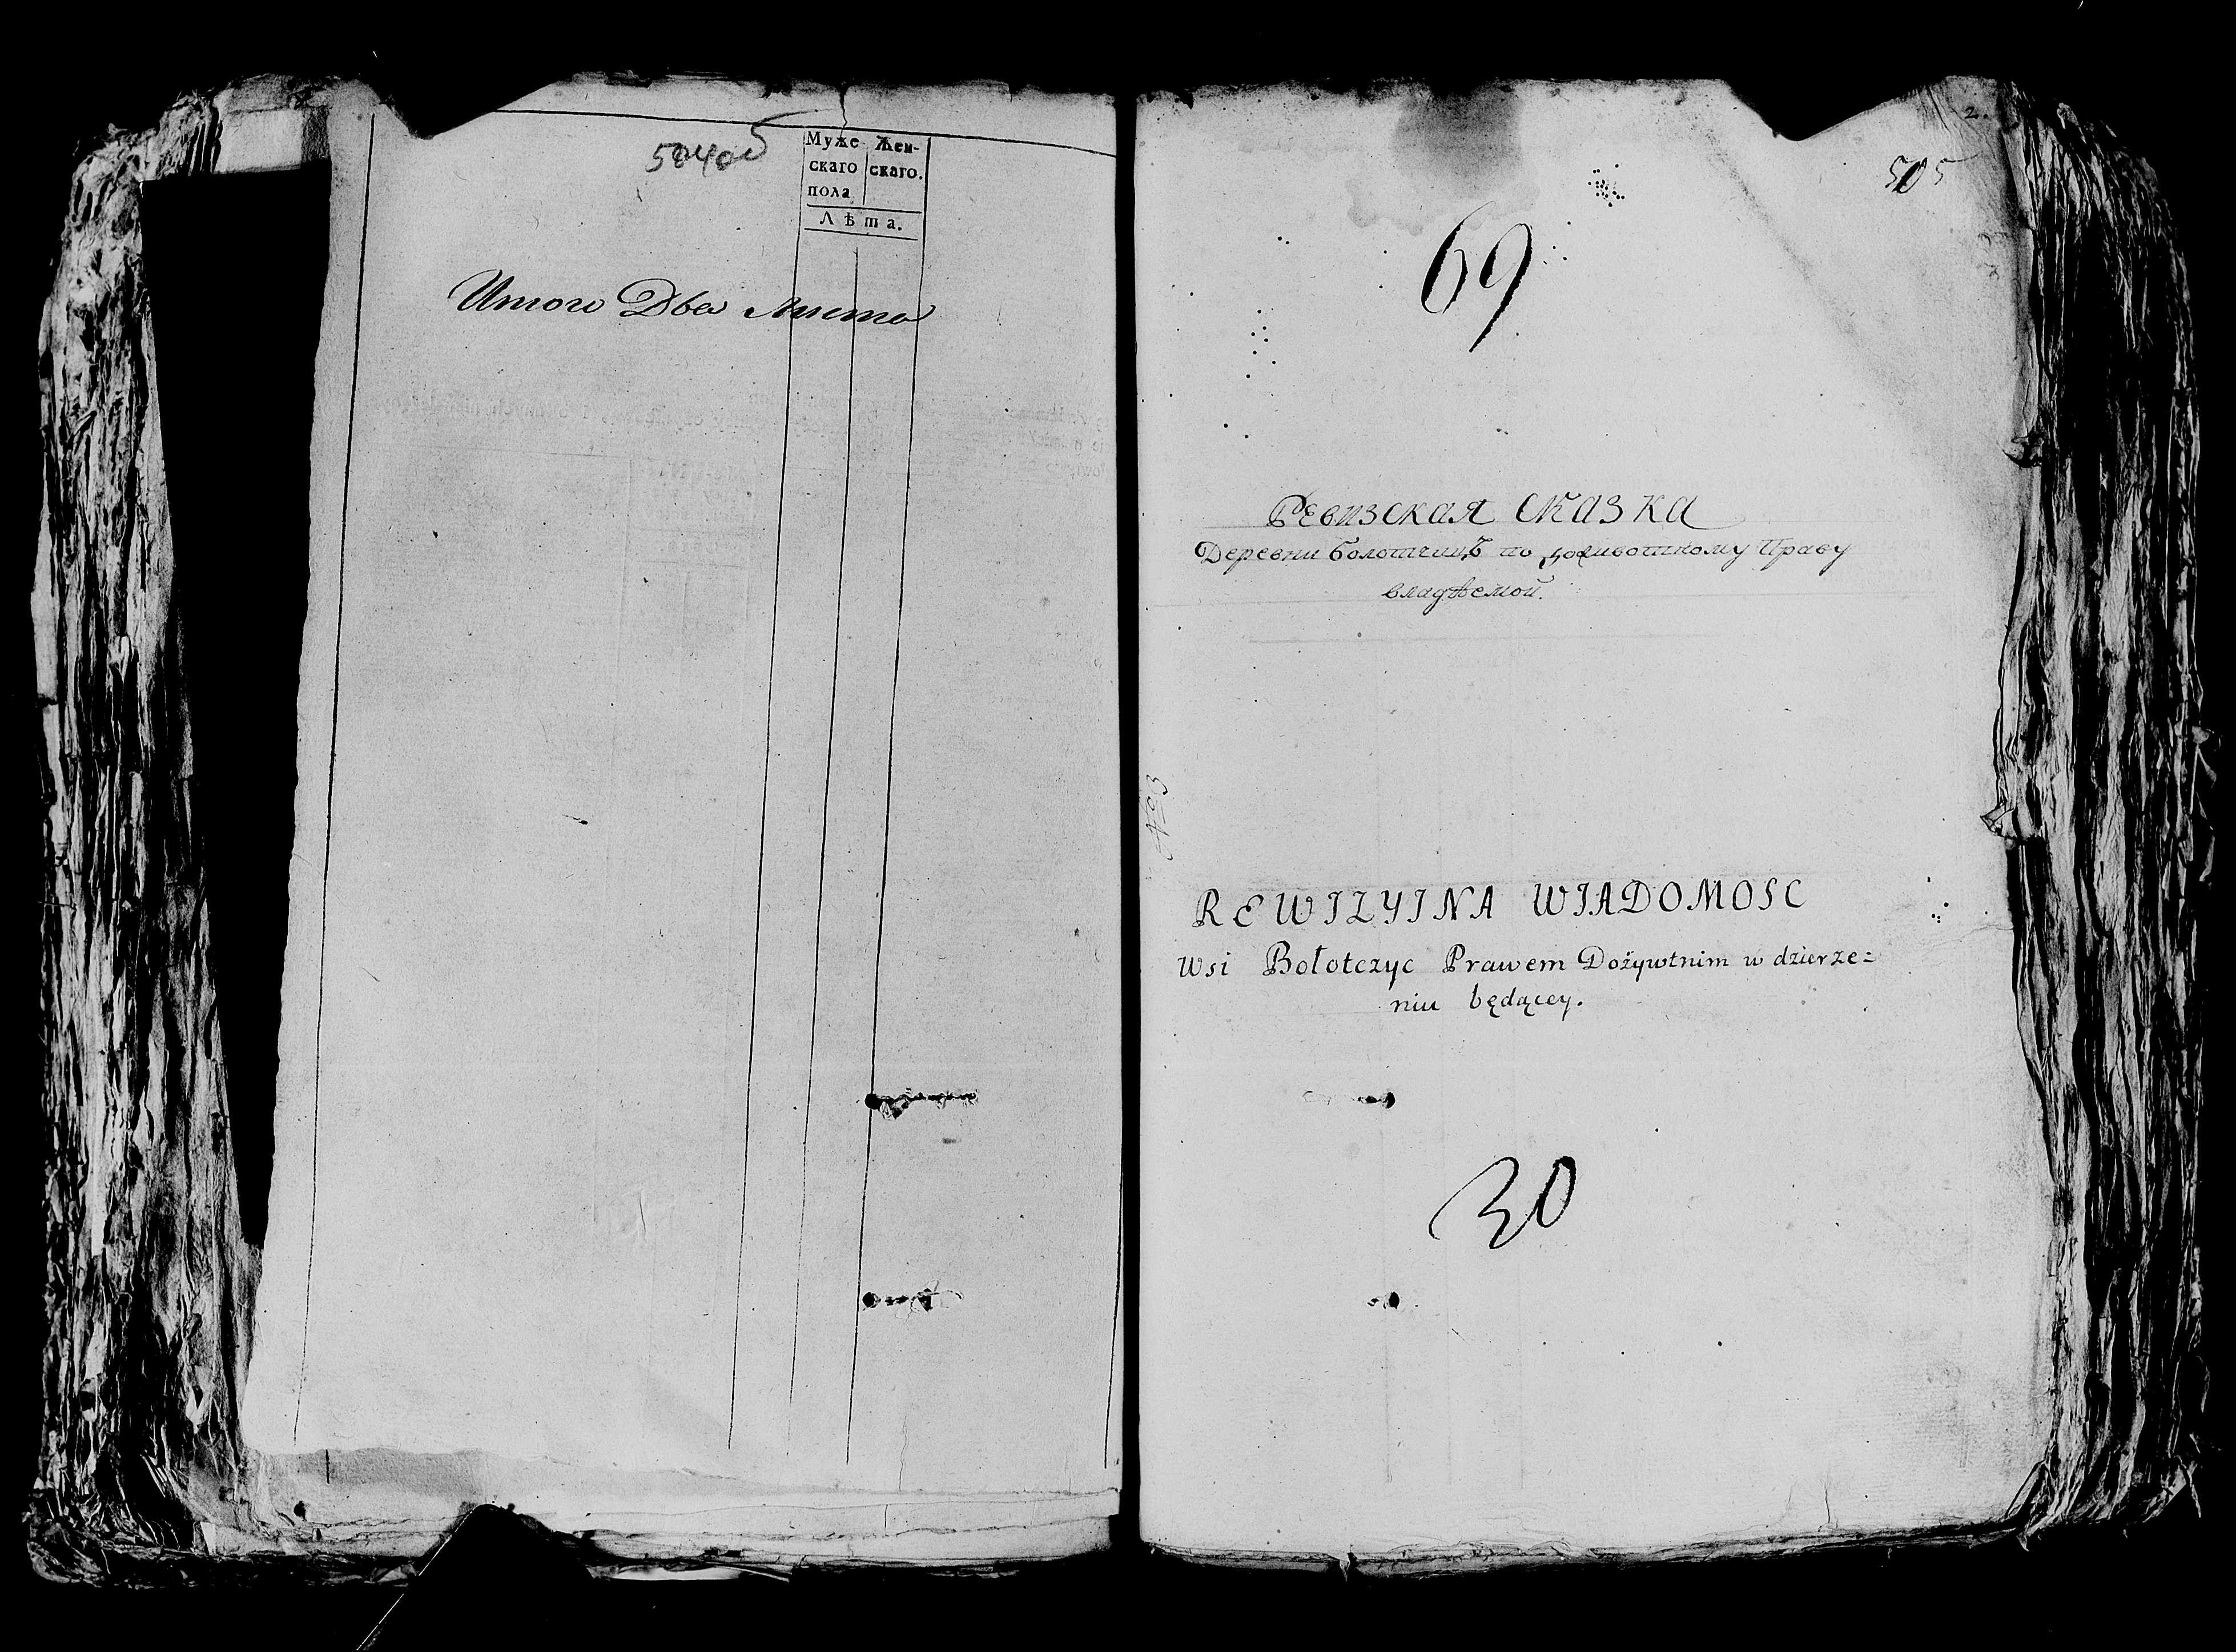 504об
Муже- Жен-
скаго скаго.
пола
Лѣта.
Итого Два листа
2.
505
69
Ревизская Сказка
Деревни Болотчицъ по доживотному Праву
владѣемой.
REWIZYINA WIADOMOSC
Wsi Bołotczyc Prawem Dożywtnim w dzierze=
niu będącey.
30